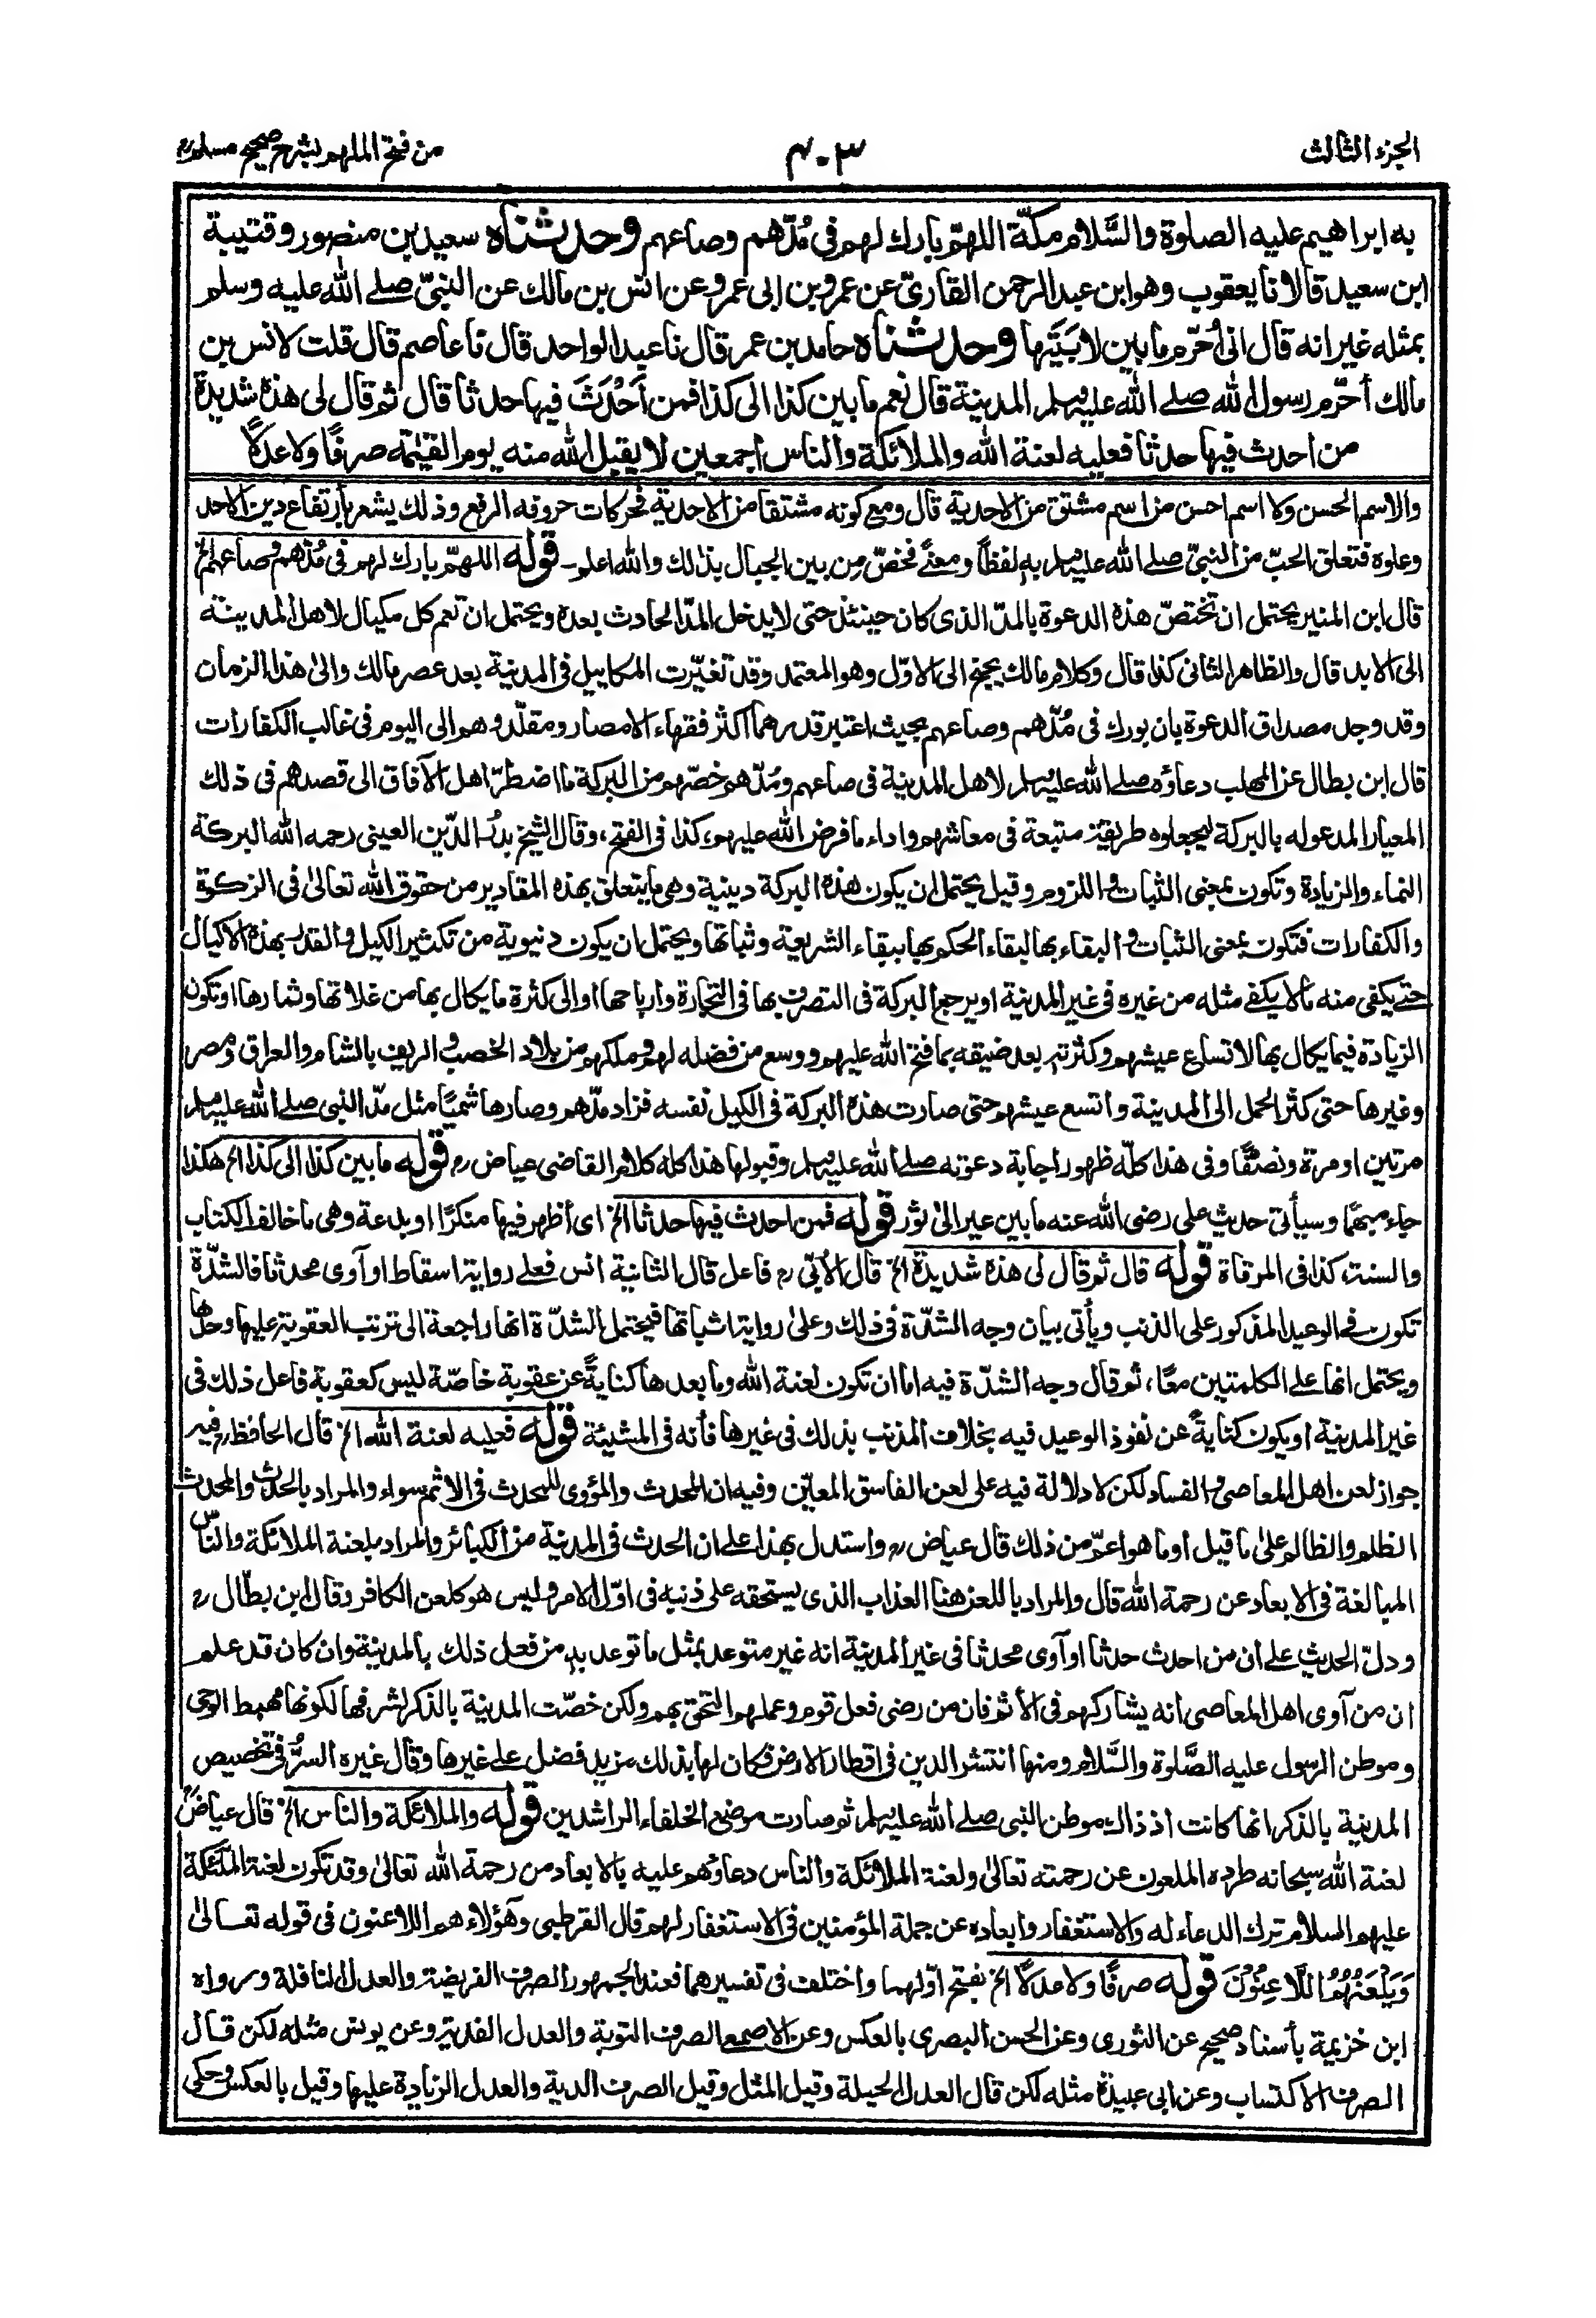 الجزء الثالث
٤٠٣
من فتح الملهم بشرح صحيح مسلم
به ابراهيم عليه الصلوة والسَّلام مكّة اللهمّ بارك لهم فى مُدّهم وصاعهم وحدثناه سعيد بن منصور وقتيبة
ابن سعيد قالا نا يعقوب وهو ابن عبد الرحمن القارىّ عن عمرو بن ابى عمرو عن انس بن مالك عن النبىّ صلے الله عليه وسلم
بمثله غير انه قال انى اُحرّم ما بين لابَتَيها وحدثناه حامد بن عمر قال نا عبد الواحد قال نا عاصم قال قلت لانس بن
مالك أحرّم رسول الله صلے الله عليه وسلم المدينة قال نعم ما بين كذا الى كذا فمن اَحْدَثَ فيها حدثا قال ثم قال لى هذه شديدة
من احدث فيها حدثا فعليه لعنة الله والملائكة والناس اجمعين لا يقبل الله منه يوم القيٰمة صرفًا ولا عدلًا
والاسم الحسن ولا اسم احسن من اسم مشتق من الاحدية قال ومع كونه مشتقا من الاحدية فحركات حروفه الرفع وذلك يشعر بأرتفاع دين الاحد
وعلوه فتعلق الحبّ من النبىّ صلے الله عليه وسلم به لفظاً ومعنىً فخصّ من بين الجبال بذلك والله اعلم۔ قوله اللهمّ بارك لهم فى مُدّهم وصاعهم الخ
قال ابن المنير يحتمل ان تختصّ هذه الدعوة بالمدّ الذى كان حينئذ حتى لا يدخل المدّ الحادث بعده ويحتمل ان تعم كل مكيال لاهل المدينة
الى الابد قال والظاهر الثانى كذا قال وكلام مالك يجنح الى الاوّل وهو المعتمد وقد تغيّرت المكاييل فى المدينة بعد عصر مالك والىٰ هذا الزمان
وقد وجد مصداق الدعوة بان بورك فى مُدّهم وصاعهم بحيث اعتبر قدرهما اكثر فقهاء الامصار ومقلّدوهم الى اليوم فى غالب الكفارات
قال ابن بطال عن المهلب دعاؤه صلے الله عليه وسلم لاهل المدينة فى صاعهم ومُدّهم خصّهم من البركة ما اضطرّ اهل الآفاق الى قصدهم فى ذلك
المعيار المدعو له بالبركة ليجعلوه طريقة متبعة فى معاشهم واداء ما فرض الله عليهم، كذا فى الفتح، وقال الشيخ بدر الدّين العينى رحمه الله البركة
النماء والزيادة وتكون بمعنى الثبات واللزوم وقيل يحتمل ان يكون هذه البركة دينية وهى ما يتعلق بهذه المقادير من حقوق الله تعالىٰ فى الزكوة
والكفارات فتكون بمعنى الثبات والبقاء بها لبقاء الحكم بها ببقاء الشريعة وثباتها ويحتمل ان يكون دنيوية من تكثير الكيل والقدر بهذه الاكيال
حتى يكفى منه ما لا يكفى مثله من غيره فى غير المدينة او يرجع البركة فى التصرف بها فى التجارة وارباحها او الى كثرة ما يكال بها من غلاتها وثمارها او تكون
الزيادة فيما يكال بها لاتساع عيشهم وكثرته بعد ضيقه بما فتح الله عليهم ووسع من فضله لهم وملكهم من بلاد الخصب والريف بالشام والعراق ومصر
وغيرها حتى كثر الحمل الى المدينة واتسع عيشهم حتى صارت هذه البركة فى الكيل نفسه فزاد مدّهم وصار هاشميًا مثل مدّ النبى صلے الله عليه وسلم
مرتين او مرة ونصفًا وفى هذا كلّه ظهور اجابة دعوته صلے الله عليه وسلم وقبولها هذا كله كلام القاضى عياض رح قوله ما بين كذا الى كذا الخ هكذا
جاء مبهمًا وسيأتى حديث على رضى الله عنه ما بين عير الىٰ ثور قوله فمن احدث فيها حدثا الخ اى أظهر فيها منكرًا او بدعة وهى ما خالف الكتاب
والسنة، كذا فى المرقاة قوله قال ثم قال لى هذه شديدة الخ قال الاُبّى رح فاعل قال الثانية انس فعلى رواية اسقاط او آوى محدثا فالشدّة
تكون فى الوعيد المذكور على الذنب ويأتى بيان وجه الشدّة فى ذلك وعلىٰ رواية اثباتها فيحتمل الشدّة انها راجعة الى ترتب العقوبة عليها وحدها
ويحتمل انها علے الكلمتين معًا، ثم قال وجه الشدّة فيه اما ان تكون لعنة الله وما بعدها كنايةً عن عقوبة خاصّة ليس كعقوبة فاعل ذلك فى
غير المدينة او يكون كنايةً عن نفوذ الوعيد فيه بخلاف المذنب بذلك فى غيرها فأنه فى المشيئة قوله فعليه لعنة الله الخ قال الحافظ رح فيه
جواز لعن اهل المعاصى والفساد لكن لا دلالة فيه على لعن الفاسق المعيّن وفيه ان المحدث والمؤوى للمحدث فى الاثم سواء والمراد بالحدث والمحدث
الظلم والظالم علىٰ ما قيل او ما هو اعمّ من ذلك قال عياض رح واستدل بهذا علے ان الحدث فى المدينة من الكبائر والمراد بلعنة الملائكة والناس
المبالغة فى الابعاد عن رحمة الله قال والمراد باللعن هنا العذاب الذى يستحقه على ذنبه فى اوّل الامر وليس هو كلعن الكافر وقال ابن بطّال رح
ودلّ الحديث علے ان من احدث حدثا او آوى محدثا فى غير المدينة انه غير متوعد بمثل ما توعد به من فعل ذلك بالمدينة وان كان قد علم
ان من آوى اهل المعاصى انه يشاركهم فى الأثم فان من رضى فعل قوم وعملهم التحق بهم ولكن خصّت المدينة بالذكر لشرفها لكونها مهبط الوحى
وموطن الرسول عليه الصَّلوة والسَّلام ومنها انتشر الدين فى اقطار الارض فكان لها بذلك مزيد فضل علے غيرها وقال غيره السرُّ فى تخصيص
المدينة بالذكر انها كانت اذ ذاك موطن النبى صلے الله عليه وسلم ثم صارت موضع الخلفاء الراشدين قوله والملائكة والناس الخ قال عياض
لعنة الله سبحانه طرده الملعون عن رحمته تعالىٰ ولعنة الملائكة والناس دعاؤهم عليه بالابعاد من رحمة الله تعالىٰ وقد تكون لعنة الملٰئكة
عليهم السلام ترك الدعاء له والاستغفار وابعاده عن جملة المؤمنين فى الاستغفار لهم قال القرطبى وهٰؤلاء هم اللاعنون فى قوله تعالىٰ
وَيَلْعَنُهُمُ اللّاعِنُوْنَ قوله صرفًا ولا عدلًا الخ بفتح اوّلهما واختلف فى تفسيرهما فعند الجمهور الصرف الفريضة والعدل النافلة ورواه
ابن خزيمة بأسناد صحيح عن الثورى وعن الحسن البصرى بالعكس وعن الاصمعى الصرف التوبة والعدل الفدية وعن يونس مثله لكن قال
الصرف الاكتساب وعن ابى عبيدة مثله لكن قال العدل الحيلة وقيل المثل وقيل الصرف الدية والعدل الزيادة عليها وقيل بالعكس وحكى